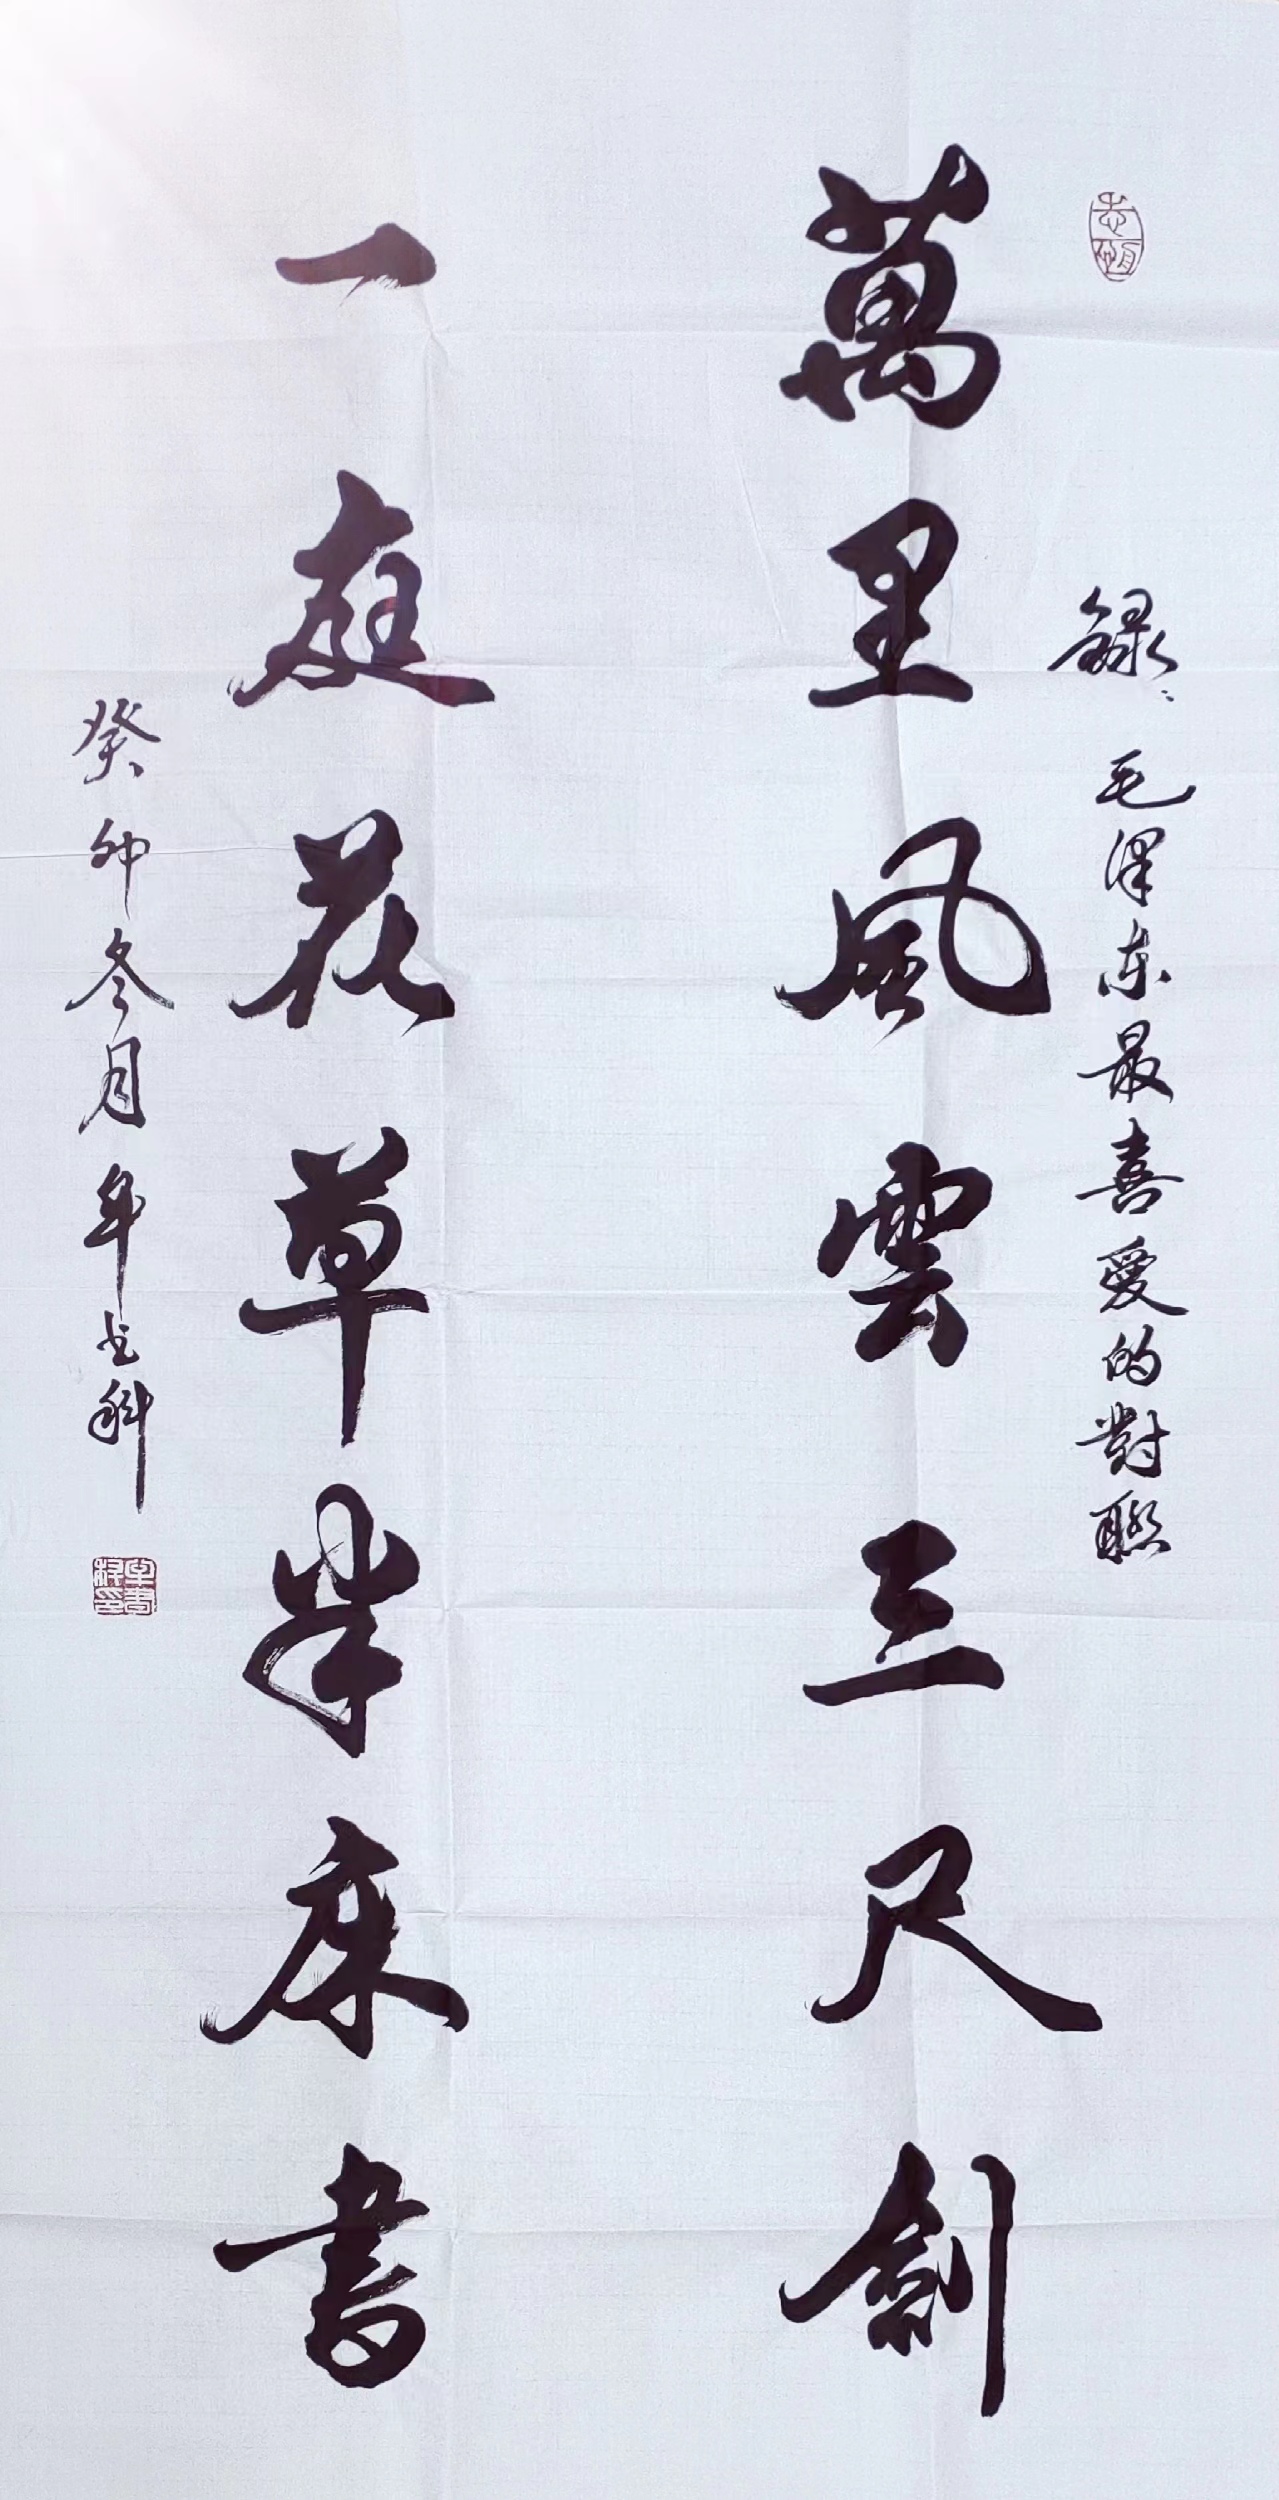 志願
錄毛澤东最喜愛的對聯
萬里風雲三尺劍
一庭花草半床書
癸卯冬月牟书科